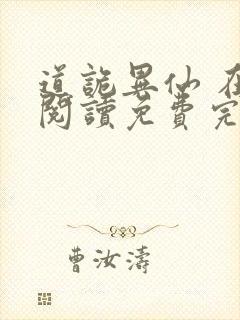 道詭異仙 在
閱讀免費完
曹汝濤